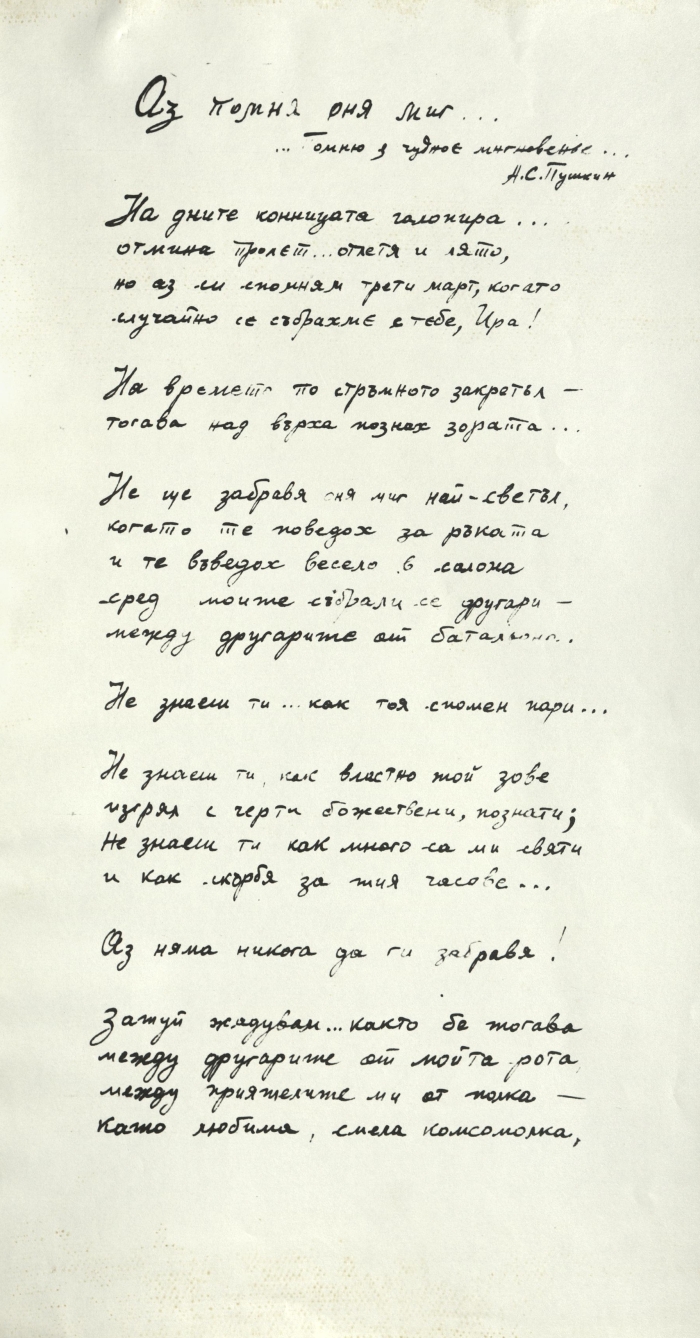 Аз помня оня миг...
... Помню я чудное мгновенье...
А.С.Пушкин
На дните конницата галопира...
отмина пролет... отлетя и лято,
но аз си спомням трети март, когато
случайно се събрахме с тебе, Ира!
На времето по стръмното закретъл —
тогава над върха познах зората...
Не ще забравя оня миг най-светъл,
когато те поведох за ръката
и те въведох весело в салона
сред моите събрали се другари —
между другарите от батальона.
Не знаеш ти... как тоя спомен пари...
Не знаеш ти, как властно той зове
изгрял с черти божествени, познати;
Не знаеш ти как много са ми святи
и как скърбя за тия часове...
Аз няма никога да ги забравя!
Затуй жадувам... както бе тогава
между другарите от мойта рота,
между приятелите ми от полка —
като любима, смела комсомолка,